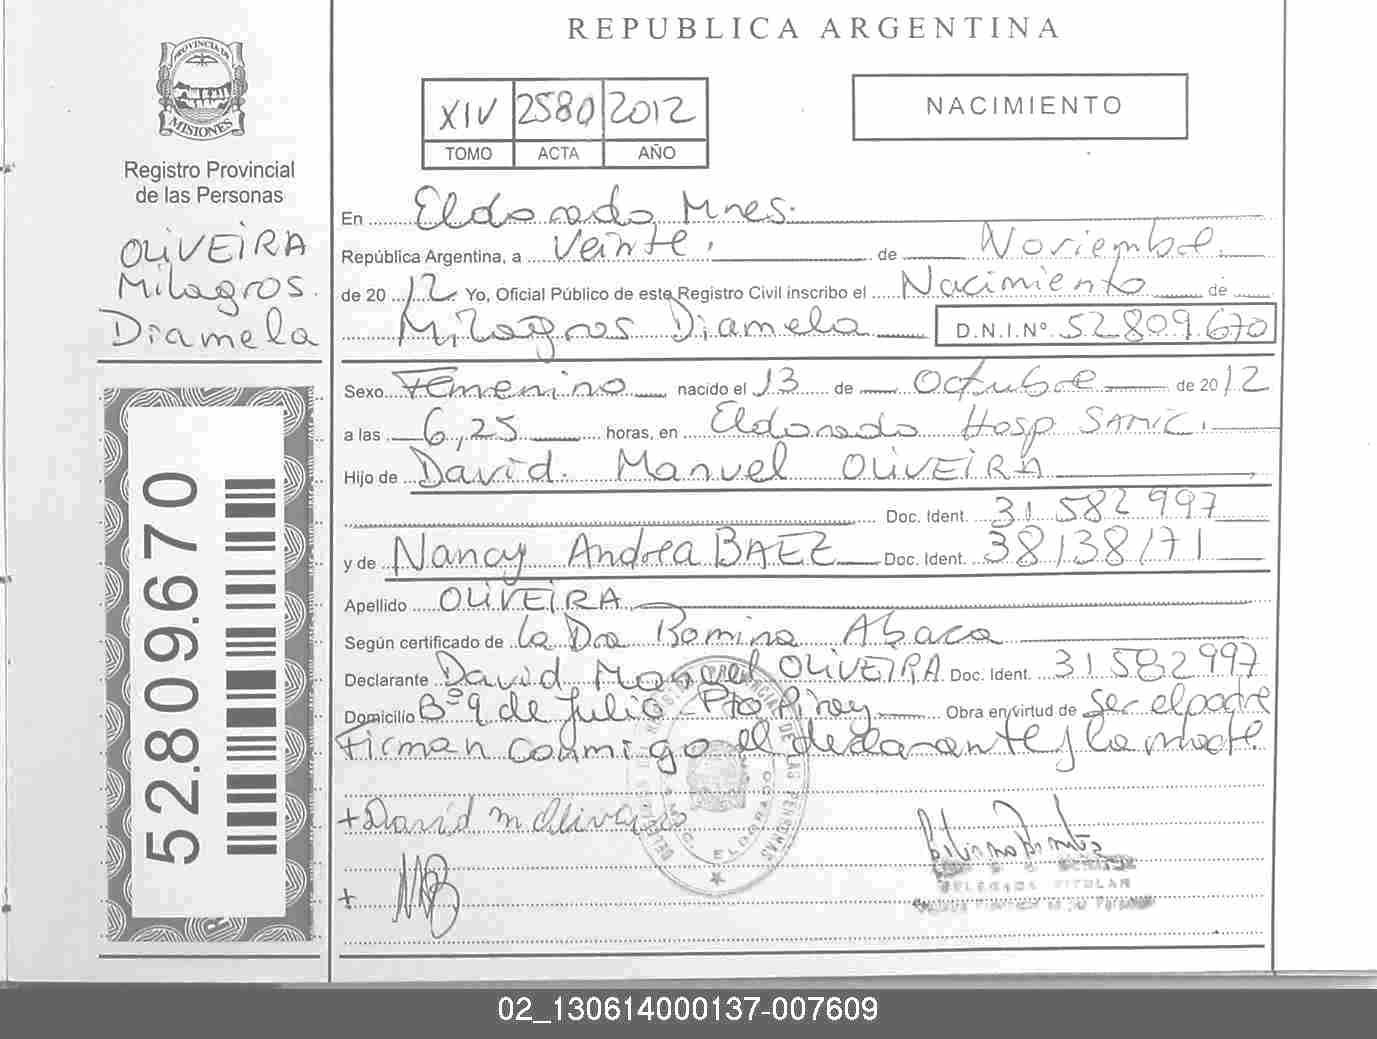 REPUBLICA ARGENTINA
PROVINCIA DE
MISIONES
Registro Provincial
de las Personas
OLIVEIRA
Milagros
Diamela
52.809.670
XIV 2580 2012
TOMO ACTA AÑO
NACIMIENTO
En Eldorado Mnes.
República Argentina, a veinte, de Noviembre.
de 2012. Yo, Oficial Público de este Registro Civil inscribo el Nacimiento de
Milagros Diamela D.N.I.Nº 52809.670
Sexo Femenino nacido el 13 de Octubre de 2012
a las 6,25 horas, en Eldorado Hosp SAMIC.
Hijo de David Manuel OLIVEIRA
Doc. Ident. 31.582.997
y de Nancy Andrea BAEZ Doc. Ident. 38138171
Apellido OLIVEIRA
Según certificado de la Dra Romina Abaca
Declarante David Manuel OLIVEIRA Doc. Ident. 31.582997
Domicilio Bº 9 de Julio - Pto Piray Obra en virtud de ser el padre
Firman conmigo el declarante y la madre.
+ David M Olivera
+ NB
ELDORADO
DELEGADA TITULAR
02_130614000137-007609